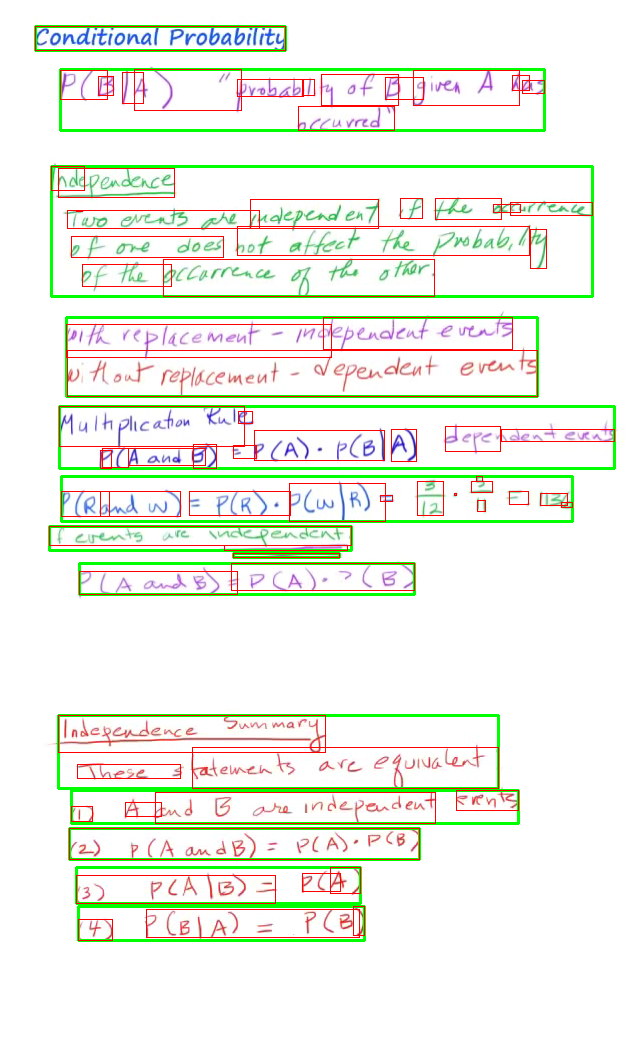 Conditional Probability
P(B|A) "probability of B given A has
occurred"
Independence
Two events are independent if the occurrence
of one does not affect the probability
of the occurrence of the other.
with replacement - independent events
without replacement - dependent events
Multiplication Rule
P(A and B) = P(A) · P(B|A) dependent events
P(R and W) = P(R) · P(W|R) = 3/12 ·
If events are independent
P(A and B) = P(A) · P(B)
Independence Summary
These statements are equivalent
(1) A and B are independent events
(2) P(A and B) = P(A) · P(B)
(3) P(A|B) = P(A)
(4) P(B|A) = P(B)